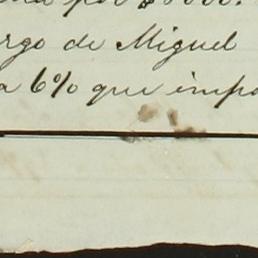 por $8000.
rgo de Miguel
a 6% que impo